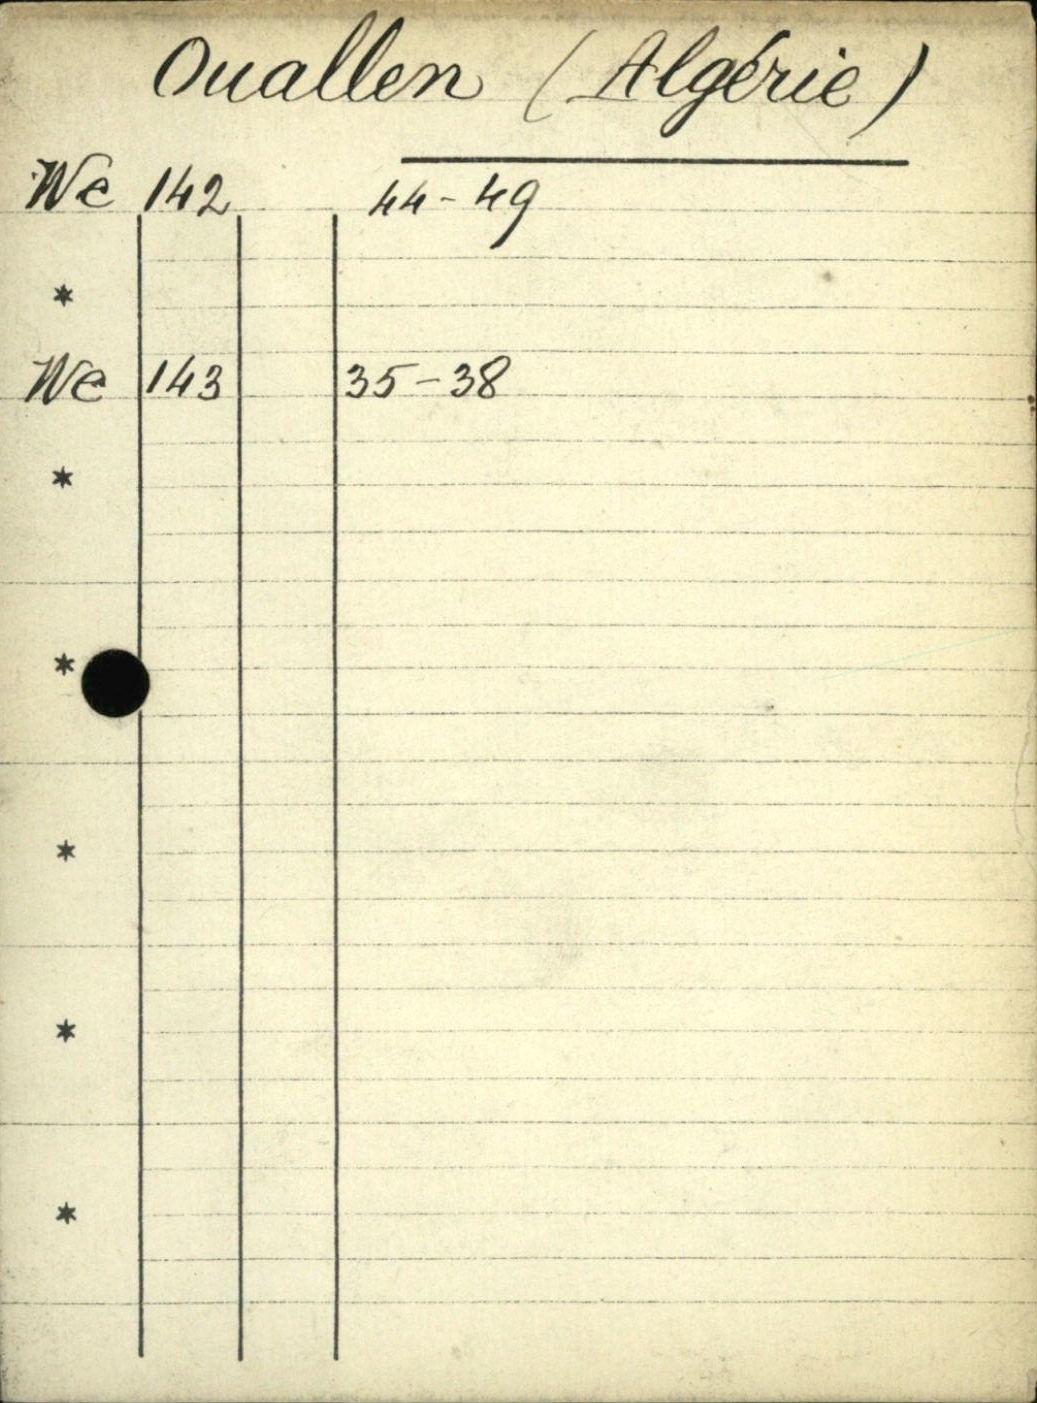 Ouallen (Algérie)
We 142 44-49
*
We 143 35-38
*
*
*
*
*